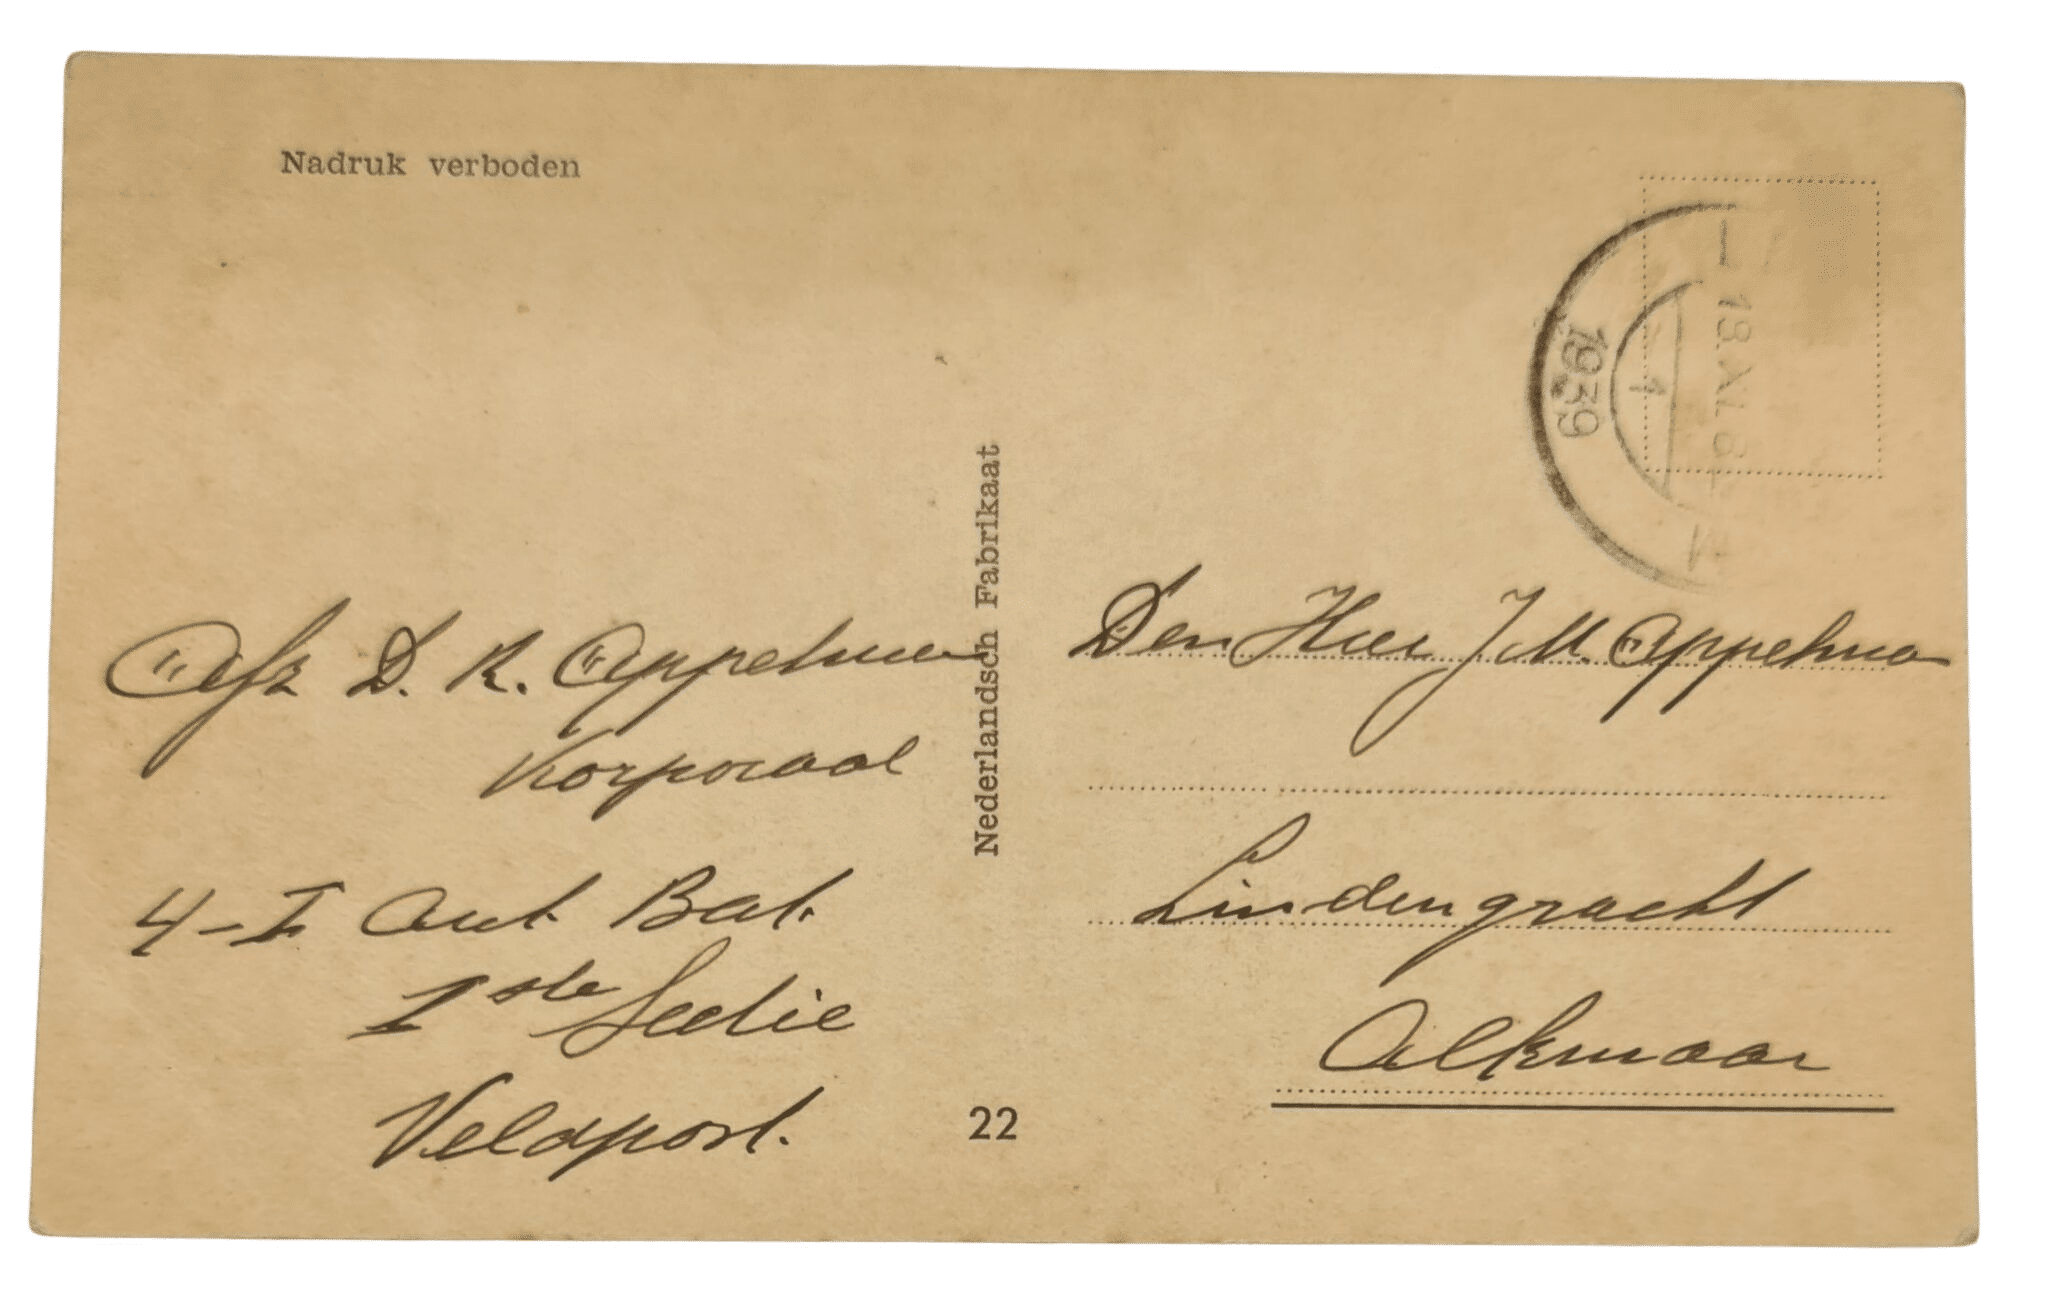 Nadruk verboden
1939
1
18.XI. 8
Afz D. K. Appelman
Korporaal
4-I Aut. Bat.
1ste Sectie
Veldpost.
Nederlandsch Fabrikaat
22
Den Heer J M. Appelma
Lindengracht
Alkmaar